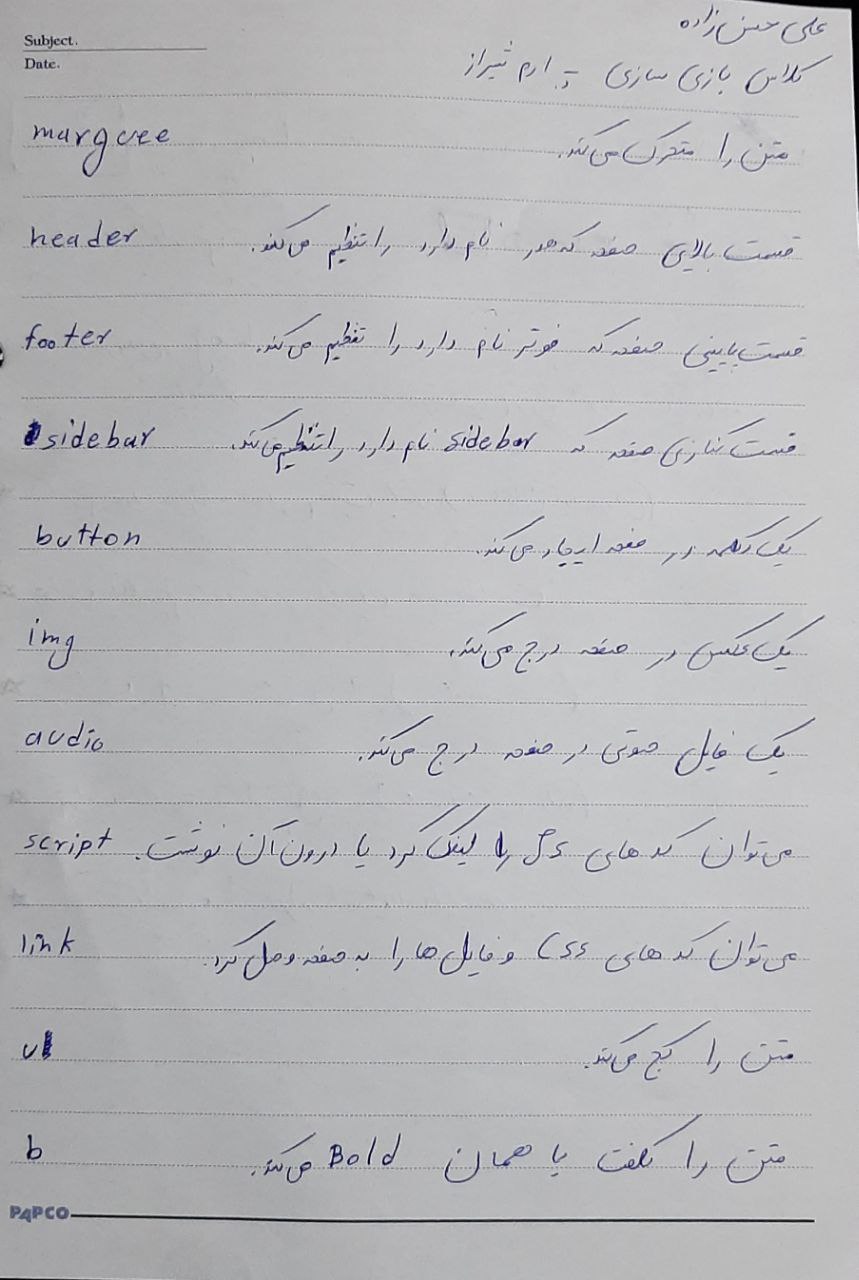 علی حسن زاده
Subject.
Date.
کلاس بازی سازی - ارم شیراز
marquee متن را متحرک می‌کند.
header قسمت بالایی صفحه که هدر نام دارد را تنظیم می‌کند.
footer قسمت پایینی صفحه که فوتر نام دارد را تنظیم می‌کند.
sidebar قسمت کناری صفحه که sidebar نام دارد را تنظیم می‌کند.
button یک دکمه در صفحه ایجاد می‌کند.
img یک عکس در صفحه درج می‌کند.
audio یک فایل صوتی در صفحه درج می‌کند.
script می‌توان کد های JS را لینک کرد یا درون آن نوشت.
link می‌توان کد های CSS و فایل ها را به صفحه وصل کرد.
u متن را کج می‌کند.
b متن را کلفت یا همان Bold می‌کند.
PAPCO